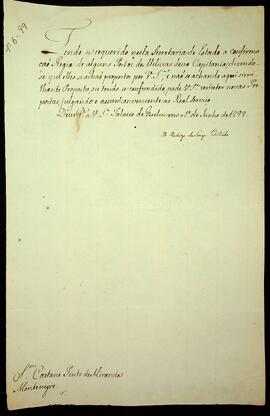 1-6-99
Tendo-se requerido nesta Secretaria de Estado a confirma-
cão Regia de alguns Postos de Milicias dessa Capitania, dizendo-
se que elles se achão propostos por V. S.ª, e não se achando aqui simi-
lhante Proposta, ou tendo-se confundido, pode V. S.ª remeter novas Pro-
postas, julgando-o assim conveniente ao Real Serviço.
Deus g.e a V. S.ª Palacio de Queluz em 1º de Junho de 1799.
D. Rodrigo de Souza Coutinho
S.r Caetano Pinto de Miranda
Montenegro